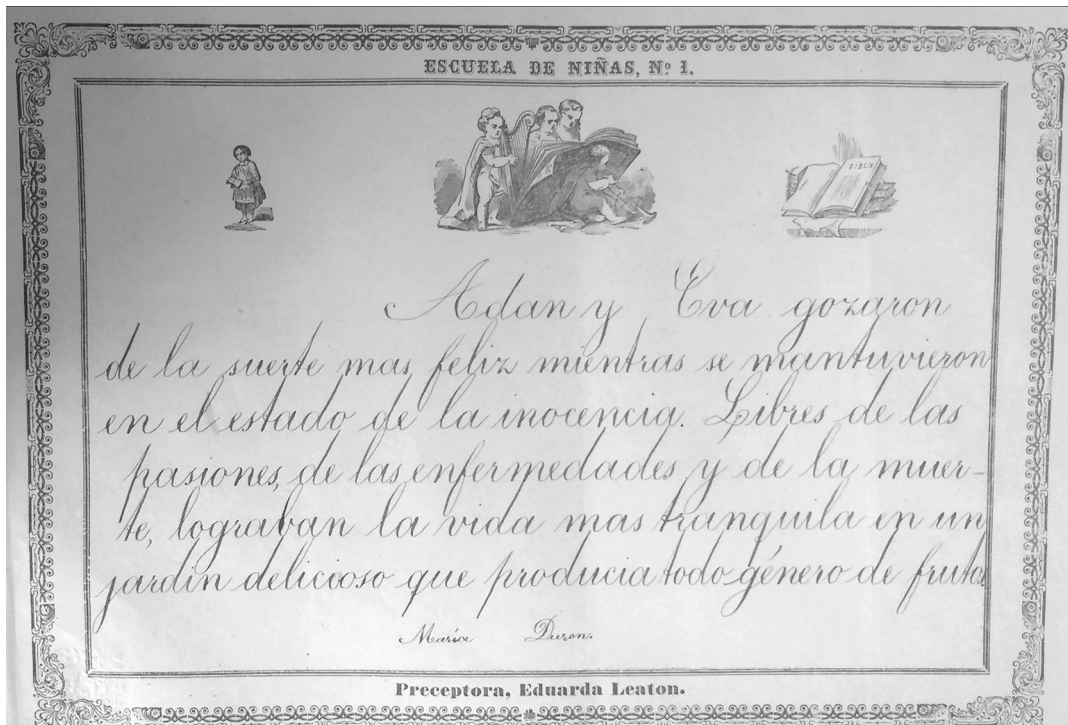 ESCUELA DE NIÑAS, Nº 1.
BIBLIA
Adan y Eva gozaron
de la suerte mas feliz mientras se mantuvieron
en el estado de la inocencia. Libres de las
pasiones, de las enfermedades y de la muer-
te, lograban la vida mas tranquila en un
jardin delicioso que producia todo género de frutos.
María Duron.
Preceptora, Eduarda Leaton.